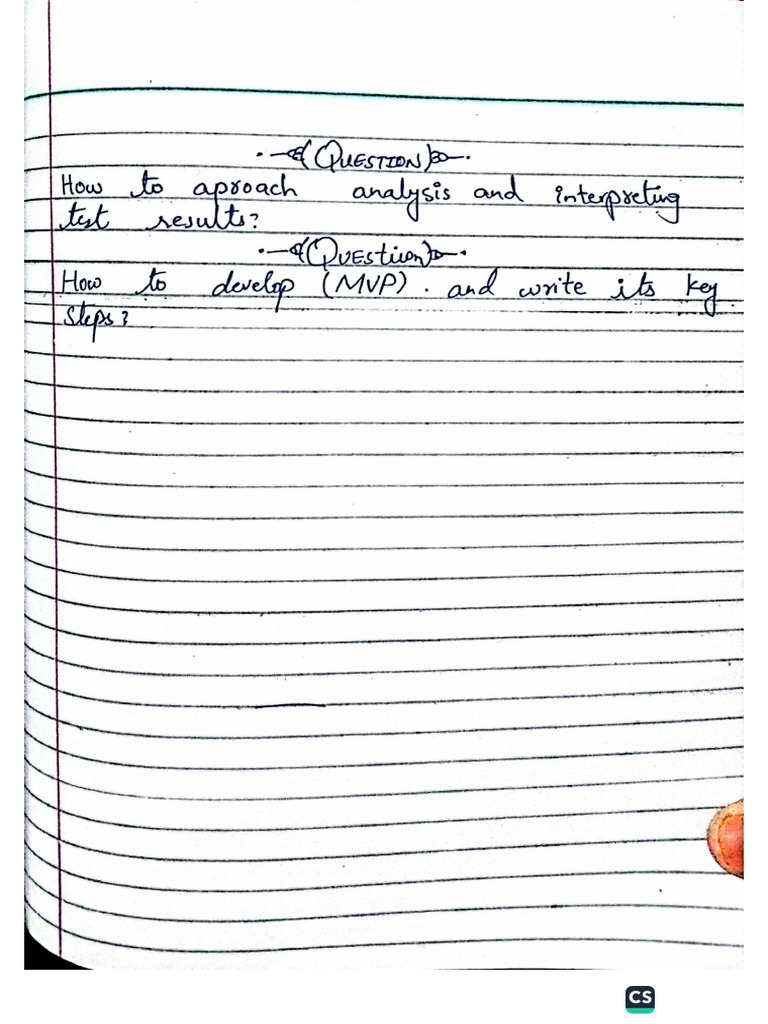 (QUESTION)
How to aproach analysis and interpreting
test results?
(QUEStiion)
How to develop (MVP). and write its key
steps?
CS